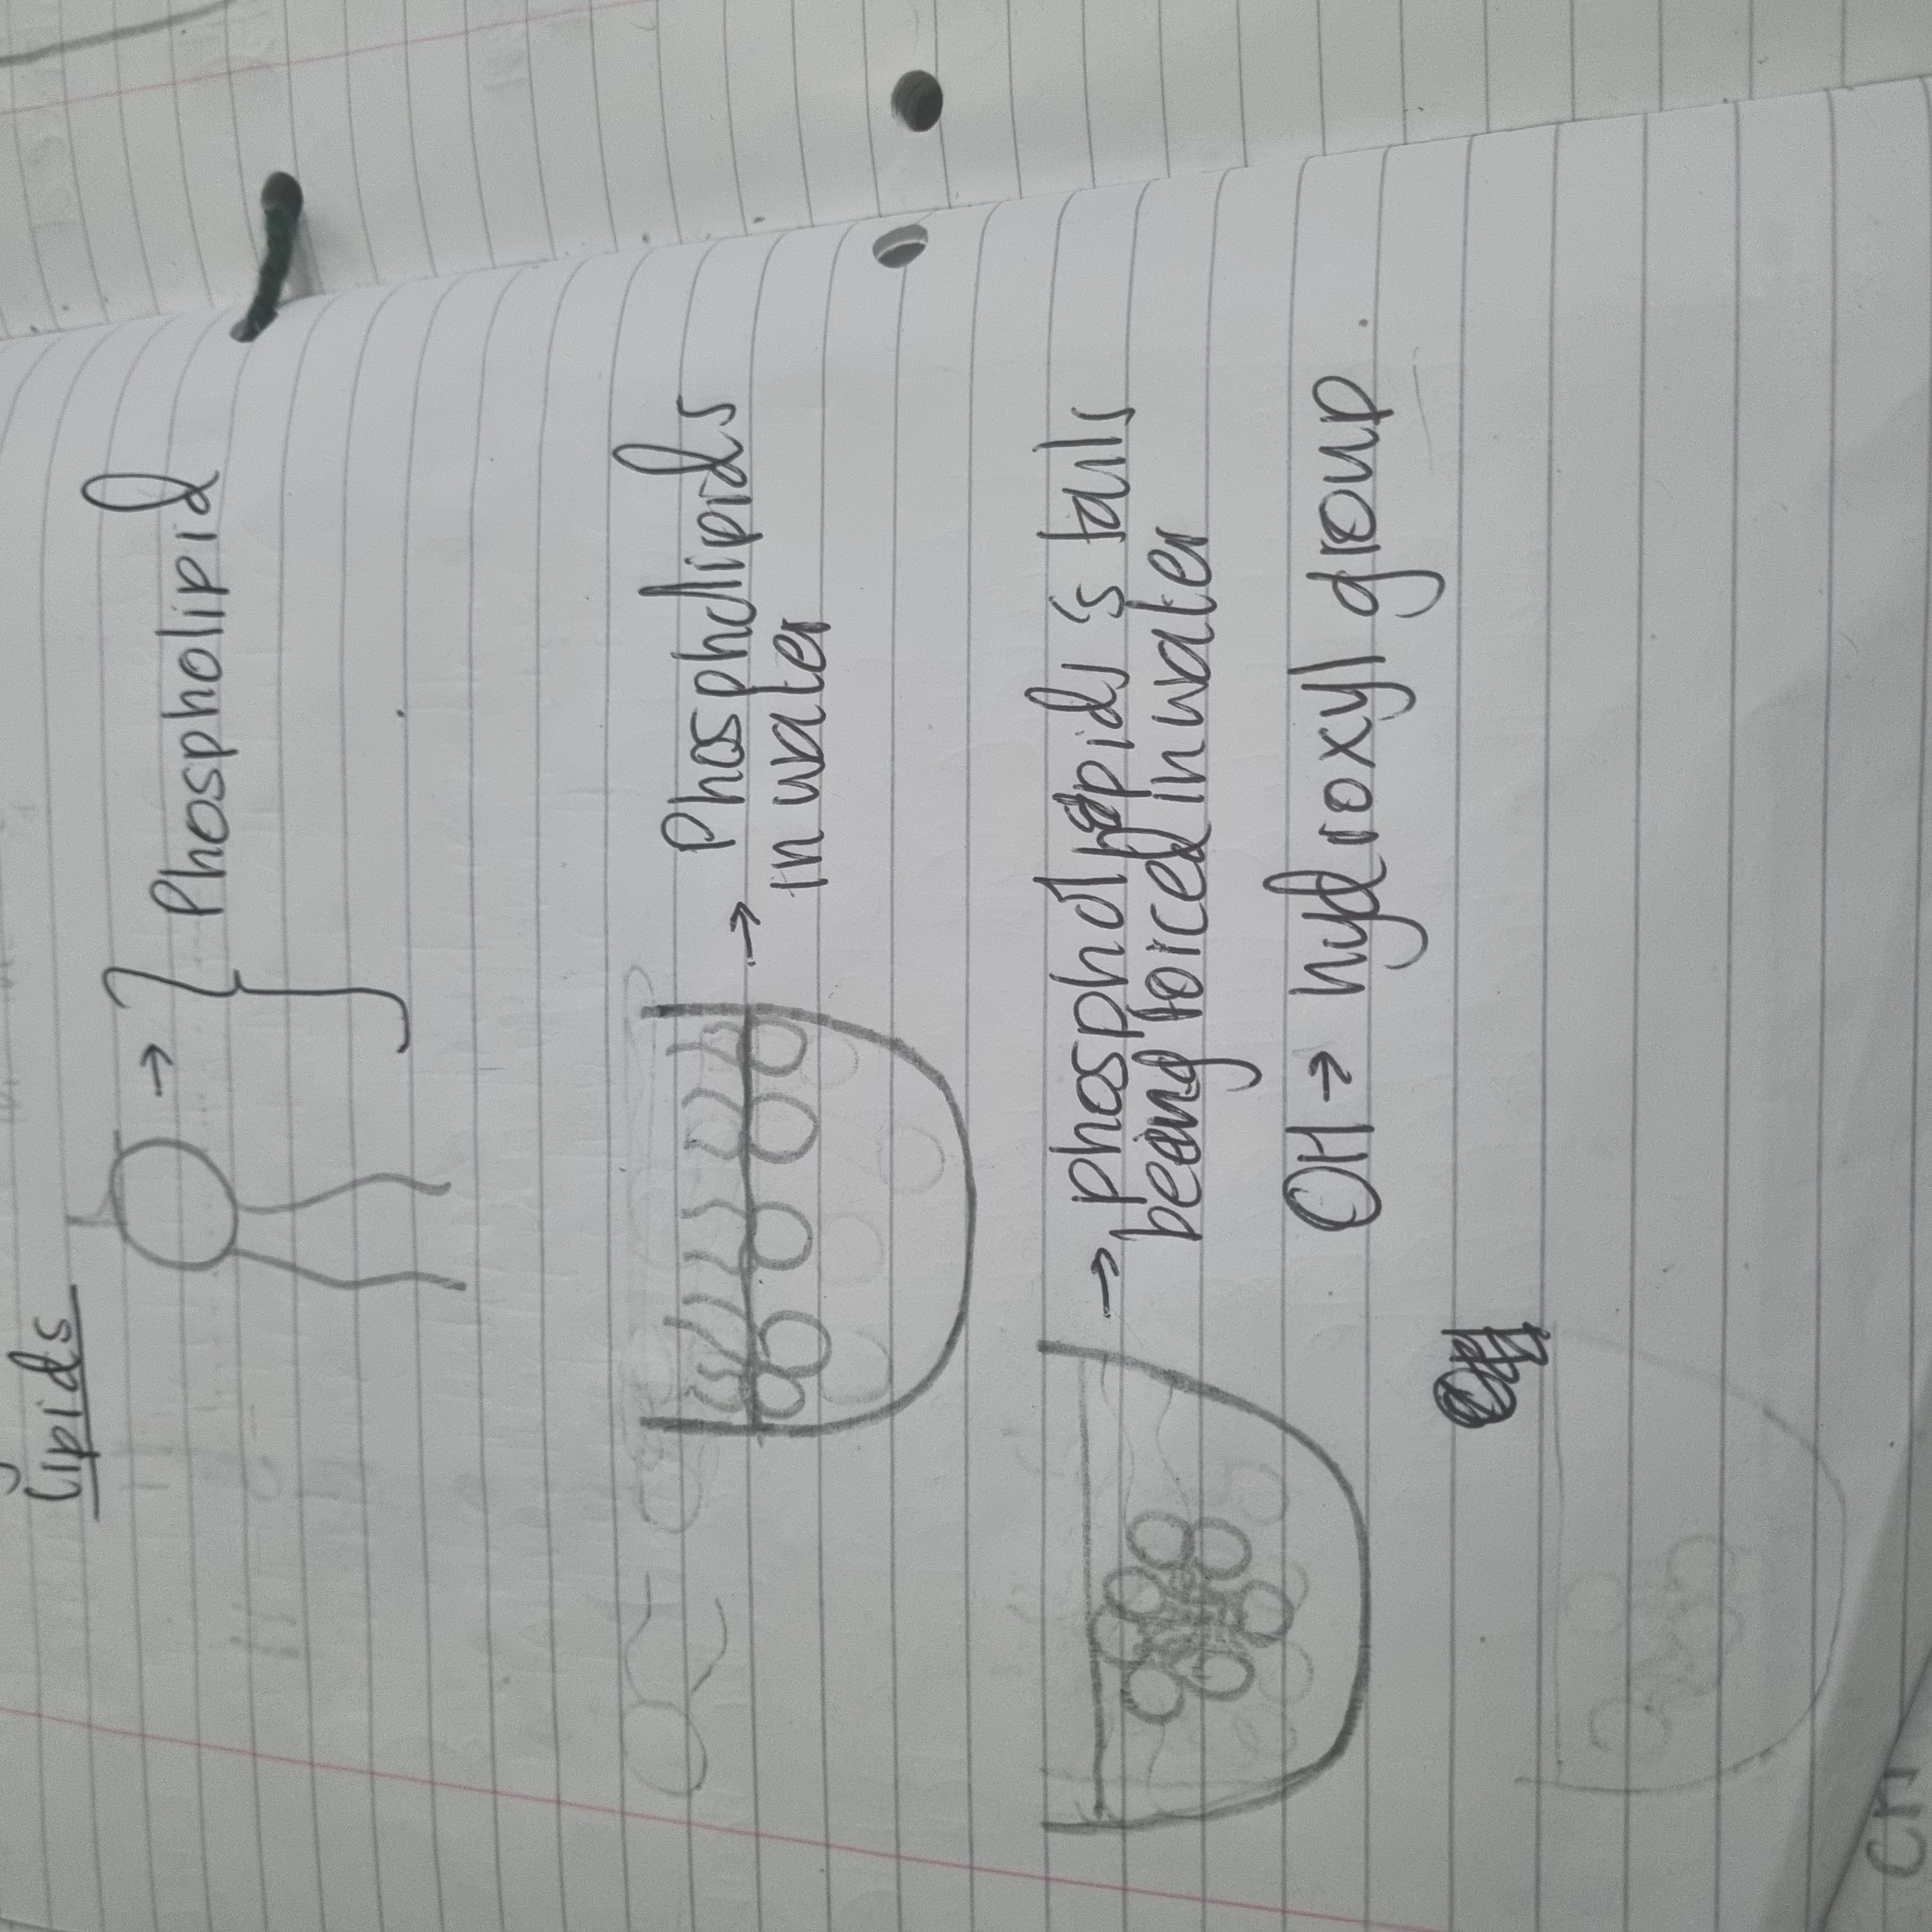 Lipids
→ Phospholipid
→ Phospholipids
in water
→ phospholipids's tails
being forced in water
OH → hydroxyl group